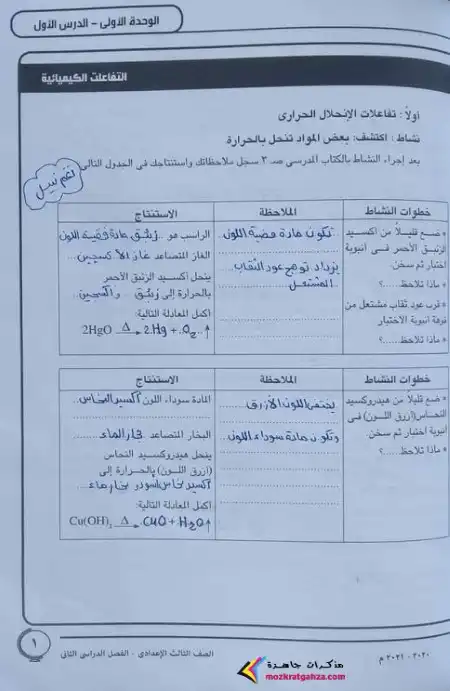 الوحدة الأولى - الدرس الأول
التفاعلات الكيميائية
أولاً: تفاعلات الإنحلال الحرارى
نشاط: اكتشف: بعض المواد تنحل بالحرارة.
بعد إجراء النشاط بالكتاب المدرسى صـ ٣ سجل ملاحظاتك واستنتاجك فى الجدول التالى
نغم نبيل
خطوات النشاط
* ضع قليلاً من أكسيد
الزئبق الأحمر فى أنبوبة
اختبار ثم سخن.
* ماذا تلاحظ.....؟
* قرب عود ثقاب مشتعل من
فوهة أنبوبة الاختبار
* ماذا تلاحظ.....؟
الملاحظة
تكون مادة فضية اللون
يزداد توهج عود الثقاب
المشتعل
الاستنتاج
الراسب هو .. زئبق مادة فضية اللون
الغاز المتصاعد غاز الأكسجين
ينحل أكسيد الزئبق الأحمر
بالحرارة إلى زئبق وأكسجين
أكمل المعادلة التالية:
2HgO Δ→ 2Hg + O₂ ↑
خطوات النشاط
* ضع قليلاً من هيدروكسيد
النحاس (أزرق اللون) فى
أنبوبة اختبار ثم سخن.
* ماذا تلاحظ.....؟
الملاحظة
يختفى اللون الأزرق
وتكون مادة سوداء اللون
الاستنتاج
المادة سوداء اللون أكسيد النحاس
البخار المتصاعد بخار الماء
ينحل هيدروكسيد النحاس
(أزرق اللون) بالحرارة إلى
أكسيد نحاس أسود وبخار ماء
أكمل المعادلة التالية:
Cu(OH)₂ Δ→ CuO + H₂O ↑
١
الصف الثالث الإعدادى - الفصل الدراسى الثانى
٢٠٢٠ - ٢٠٢١ م
مذكرات جاهزة
mozkratgahza.com